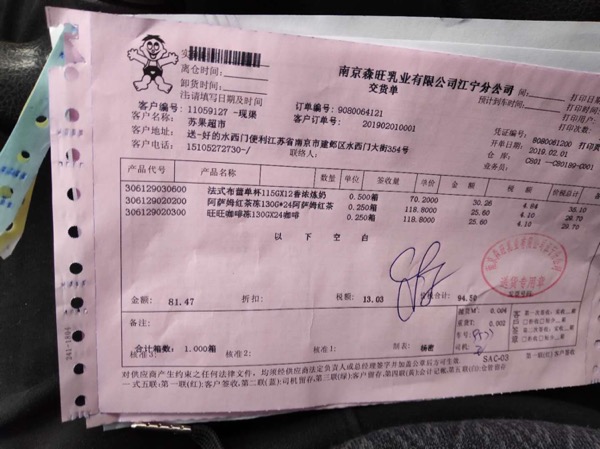 南京森旺乳业有限公司江宁分公司
交货单
离仓时间:
卸货时间:
注:请填写日期及时间
预计到车时间:
打印日期
打印时间:
打印用户:
打印次数:
客户编号: 11059127 -现渠
订单编号: 9080064121
客户名称: 苏果超市
客户订单号: 201902010001
凭证编号: 9080061200
客户地址: 送-好的水西门便利江苏省南京市建邺区水西门大街354号
日期: 2019.02.01
客户电话: 15105272730-/
联络人:
仓库:
业务员:
产品代号 产品名称 数量 单位 签收量 单价 金额 税额 价税总计
306129030600 法式布蕾单杯115GX12香浓炼奶 0.500箱 70.2000 30.26 4.84 35.10
306129020200 阿萨姆红茶冻130G*24阿萨姆红茶 0.250箱 118.8000 25.60 4.10 29.70
306129020300 旺旺咖啡冻130GX24咖啡 0.250箱 118.8000 25.60 4.10 29.70
以下空白
送货专用章
金额: 81.47 折扣: 税额: 13.03 价税合计: 94.50
备注:
合计箱数: 1.000箱
核准3: 核准2: 核准1: 制表: 杨密
车号:
司机:
SAC-03
第一联(红)客户签收
对供应商产生约束之任何法律文件,均须经供应商法定负责人或总经理签字并加盖公章后方可生效.
一式五联:第一联(红):客户签收,第二联(蓝):司机留存,第三联(绿):客户留存,第四联(黄):会计记帐,第五联(白):仓管留存